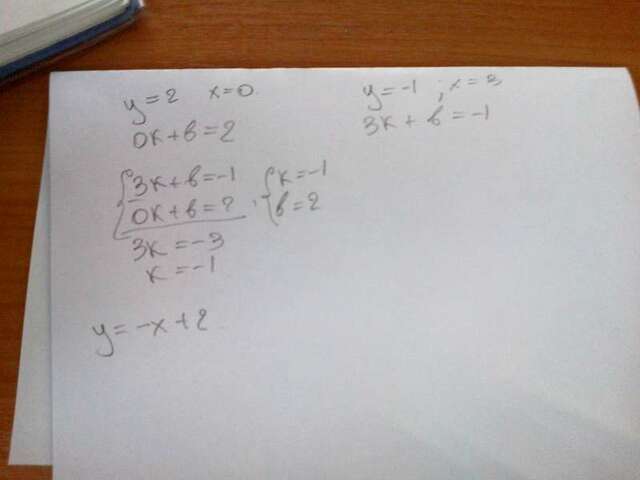 y=2 x=0
0k+в=2
y=-1 ; x=3
3k+в=-1
3k+в=-1
0k+в=2
k=-1
в=2
3k=-3
k=-1
y=-x+2